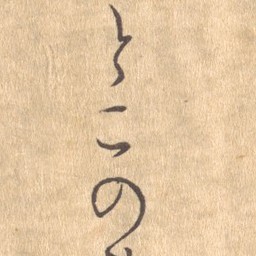 とこの